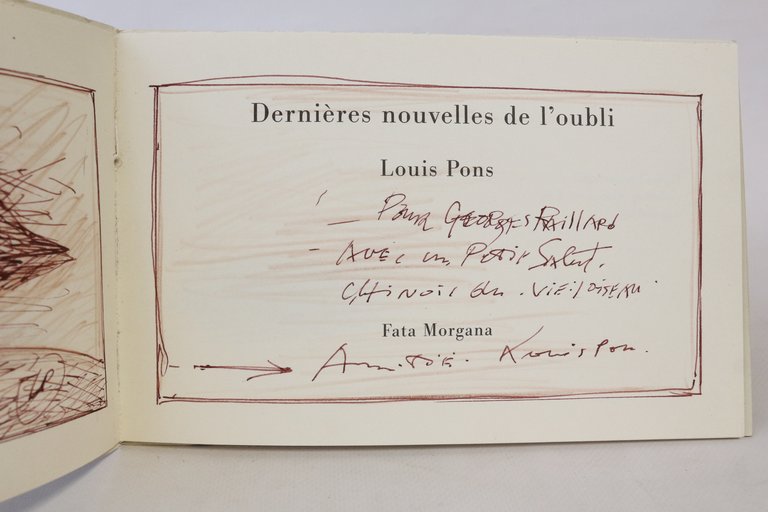 Dernières nouvelles de l'oubli
Louis Pons
— Pour Georges Raillard
- Avec un Petit Salut
chinois du vieil oiseau.
Fata Morgana
Amitié. Louis Pons.